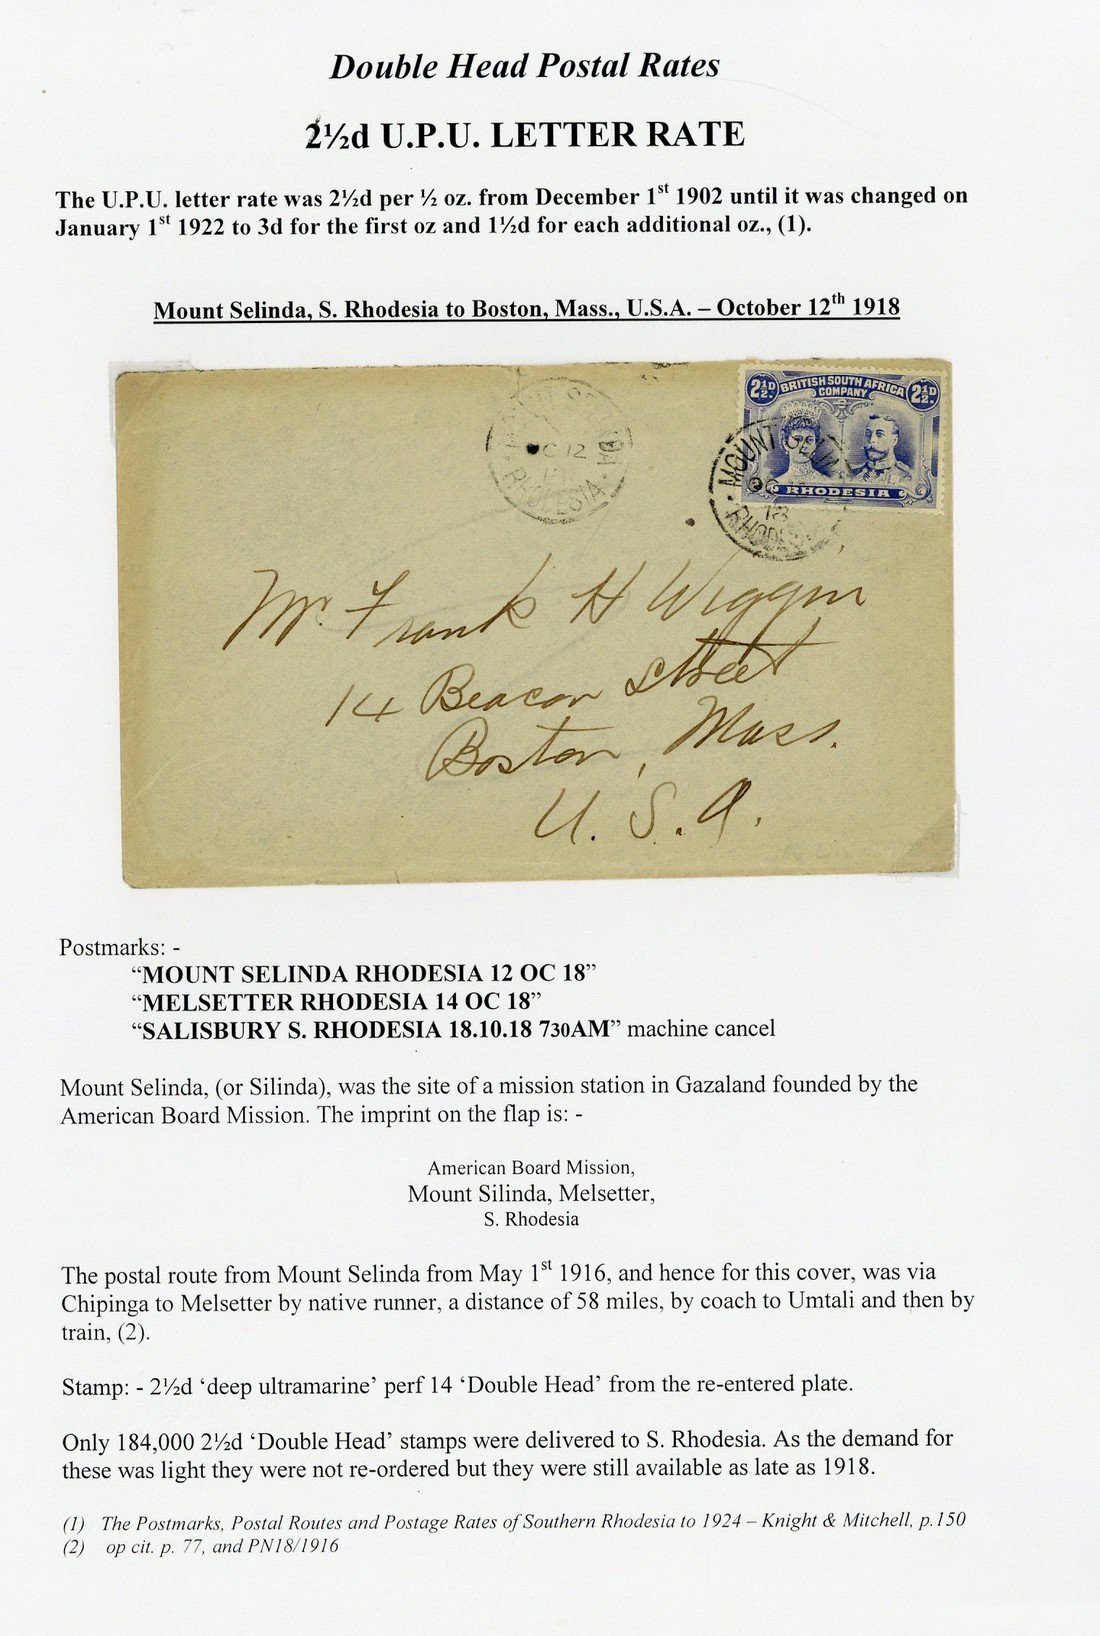 Double Head Postal Rates
2½d U.P.U. LETTER RATE
The U.P.U. letter rate was 2½d per ½ oz. from December 1st 1902 until it was changed on
January 1st 1922 to 3d for the first oz and 1½d for each additional oz., (1).
Mount Selinda, S. Rhodesia to Boston, Mass., U.S.A. – October 12th 1918
OC 12
18
RHODESIA
2½D. BRITISH SOUTH AFRICA 2½D.
COMPANY
RHODESIA
MOUNT SELIN
OC
18
RHODES
Mr. Frank H Wiggin
14 Beacon Street
Boston, Mass.
U. S. A.
Postmarks: -
“MOUNT SELINDA RHODESIA 12 OC 18”
“MELSETTER RHODESIA 14 OC 18”
“SALISBURY S. RHODESIA 18.10.18 730AM” machine cancel
Mount Selinda, (or Silinda), was the site of a mission station in Gazaland founded by the
American Board Mission. The imprint on the flap is: -
American Board Mission,
Mount Silinda, Melsetter,
S. Rhodesia
The postal route from Mount Selinda from May 1st 1916, and hence for this cover, was via
Chipinga to Melsetter by native runner, a distance of 58 miles, by coach to Umtali and then by
train, (2).
Stamp: - 2½d ‘deep ultramarine’ perf 14 ‘Double Head’ from the re-entered plate.
Only 184,000 2½d ‘Double Head’ stamps were delivered to S. Rhodesia. As the demand for
these was light they were not re-ordered but they were still available as late as 1918.
(1) The Postmarks, Postal Routes and Postage Rates of Southern Rhodesia to 1924 – Knight & Mitchell, p.150
(2) op cit. p. 77, and PN18/1916